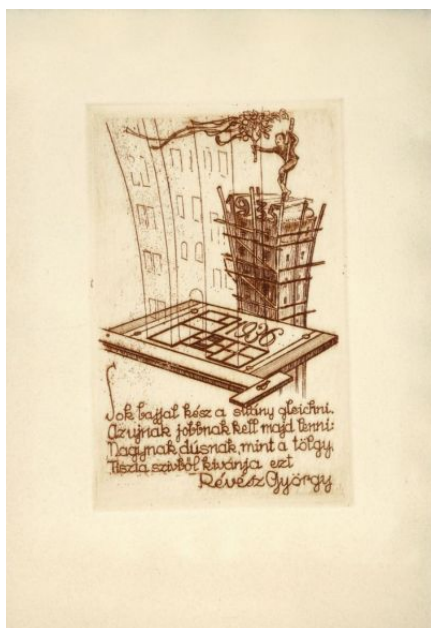 1935
1936
Sok bajjal kész a sivány gleichni.
Az ujnak jobbnak kell majd lenni:
Nagynak, dúsnak, mint a tölgy.
Tiszta szivből kivánja ezt
Révész György